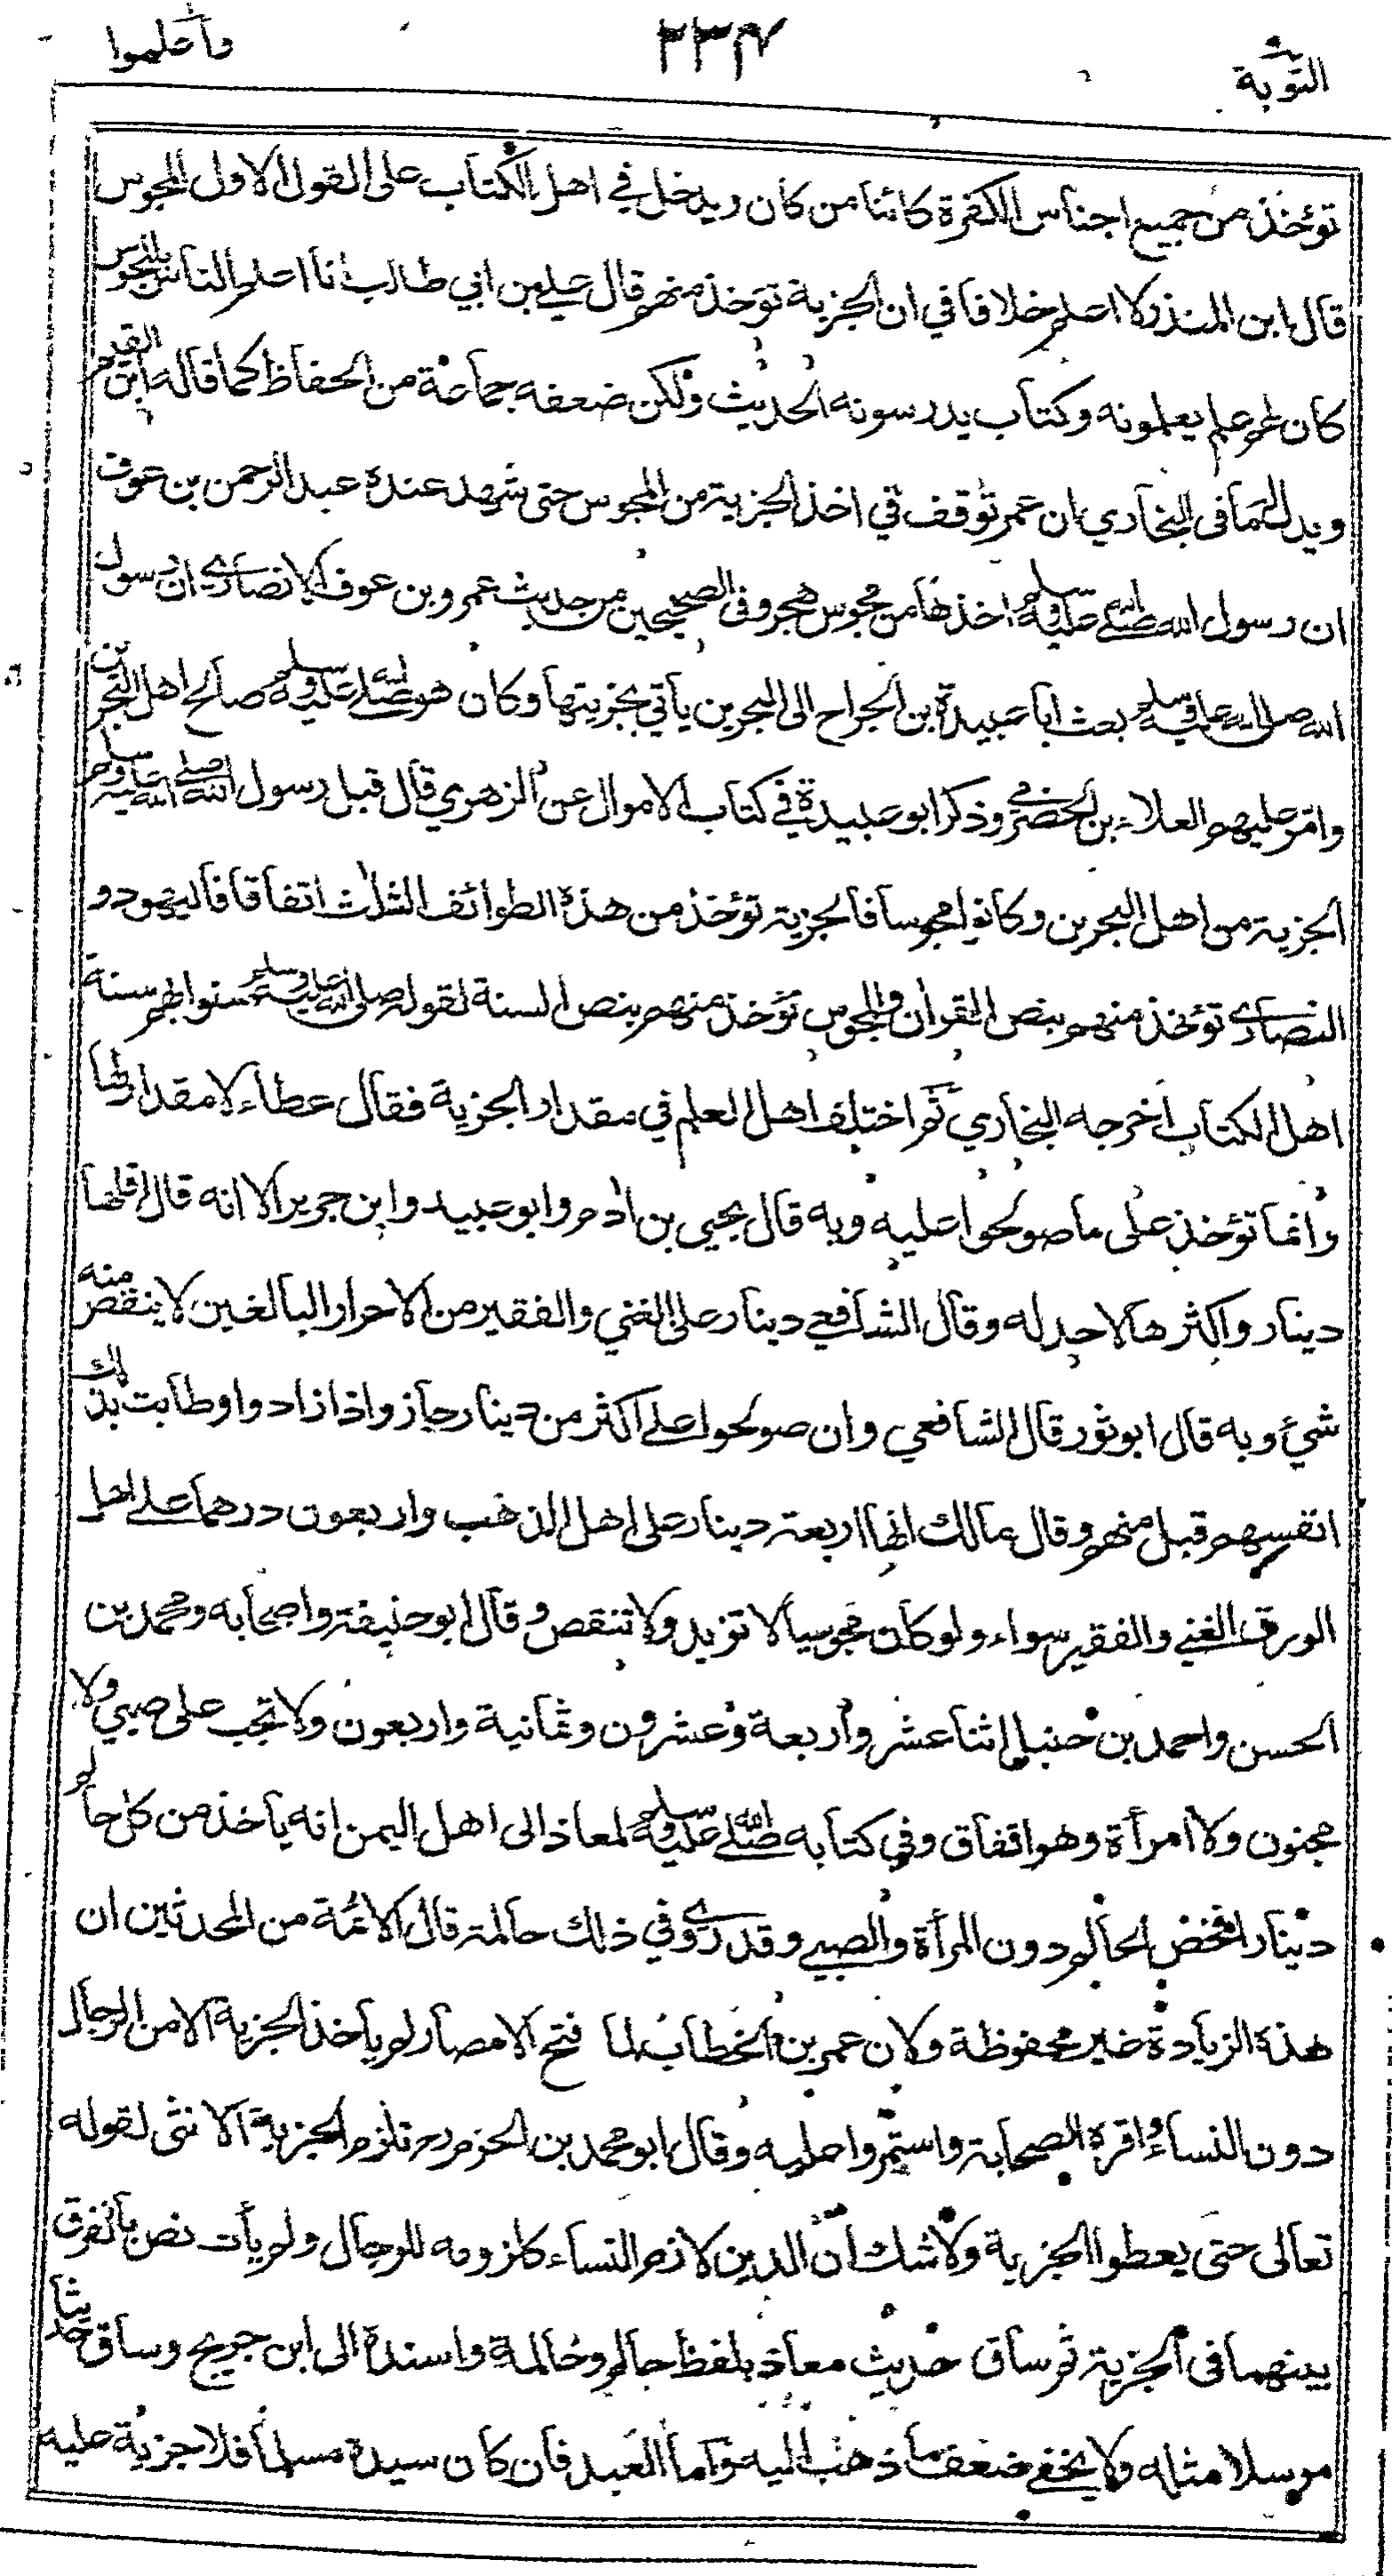 التوبة ٢٣٤ وأعلموا
تؤخذ من جميع اجناس الكفرة كائنا من كان ويدخل في اهل الكتاب على القول الاول المجوس
قال ابن المنذر لا اعلم خلافا في ان الجزية تؤخذ منهم قال علي بن ابي طالب انا اعلم الناس بالمجوس
كان لهم علم يعلمونه وكتاب يدرسونه الحديث ولكن ضعفه جماعة من الحفاظ كما قاله ابن القيم
ويدل لهما في البخاري ان عمر توقف في اخذ الجزية من المجوس حتى شهد عنده عبد الرحمن بن عوف
ان رسول الله صلى الله عليه وسلم اخذها من مجوس هجر وفي الصحيحين من حديث عمرو بن عوف الانصاري ان رسول
الله صلى الله عليه وسلم بعث ابا عبيدة بن الجراح الى البحرين يأتي بجزيتها وكان هو صلى الله عليه وسلم صالح اهل البحرين
وامر عليهم العلاء بن الحضرمي وذكر ابو عبيدة في كتاب الاموال عن الزهري قال قبل رسول الله صلى الله عليه وسلم
الجزية من اهل البحرين وكانوا مجوسا فالجزية تؤخذ من هذه الطوائف الثلاث اتفاقا فاليهود و
النصارى تؤخذ منهم بنص القرأن والمجوس تؤخذ منهم بنص السنة لقوله صلى الله عليه وسلم سنوا بهم سنة
اهل الكتاب اخرجه البخاري ثم اختلف اهل العلم في مقدار الجزية فقال عطاء لا مقدار لها
وانما تؤخذ على ما صولحوا عليه وبه قال يحيى بن ادم وابو عبيد وابن جرير الا انه قال اقلها
دينار واكثرها لا حد له وقال الشافعي دينار على الغني والفقير من الاحرار البالغين لا ينقص منه
شيء وبه قال ابو ثور قال الشافعي وان صولحوا على اكثر من دينار جاز واذا زادوا وطابت بذلك
انفسهم قبل منهم وقال مالك انها اربعة دينار على اهل الذهب واربعون درهما على اهل
الورق الغني والفقير سواء ولو كان مجوسيا لا تزيد ولا تنقص وقال ابو حنيفة واصحابه ومحمد بن
الحسن واحمد بن حنبل اثنا عشر واربعة وعشرون وثمانية واربعون ولا تجب على صبي ولا
مجنون ولا امرأة وهو اتفاق وفي كتابه صلى الله عليه وسلم لمعاذ الى اهل اليمن انه يأخذ من كل حالم
دينارا فخص الحالم دون المرأة والصبي وقد روي في ذلك حالمة قال الائمة من المحدثين ان
هذه الزيادة غير محفوظة ولان عمر بن الخطاب لما فتح الامصار لم يأخذ الجزية الا من الرجال
دون النساء واقره الصحابة واستمروا عليه وقال ابو محمد بن الحزم رح تلزم الجزية الانثى لقوله
تعالى حتى يعطوا الجزية ولا شك ان الدين لازم النساء كلزومه للرجال ولم يأت نص بالفرق
بينهما في الجزية ثم ساق حديث معاذ بلفظ حالم وحالمة واسنده الى ابن جريج وساق حديثا
مرسلا مثله ولا يخفى ضعف ما ذهب اليه واما العبد فان كان سيده مسلما فلا جزية عليه